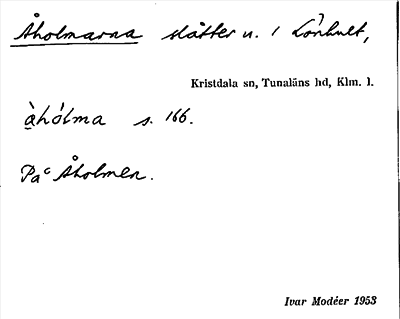 Åholmarna slåtter u. / Lönhult,
Kristdala sn, Tunaläns hd, Klm. l.
àhólma s. 166.
På Åholmen.
Ivar Modéer 1953